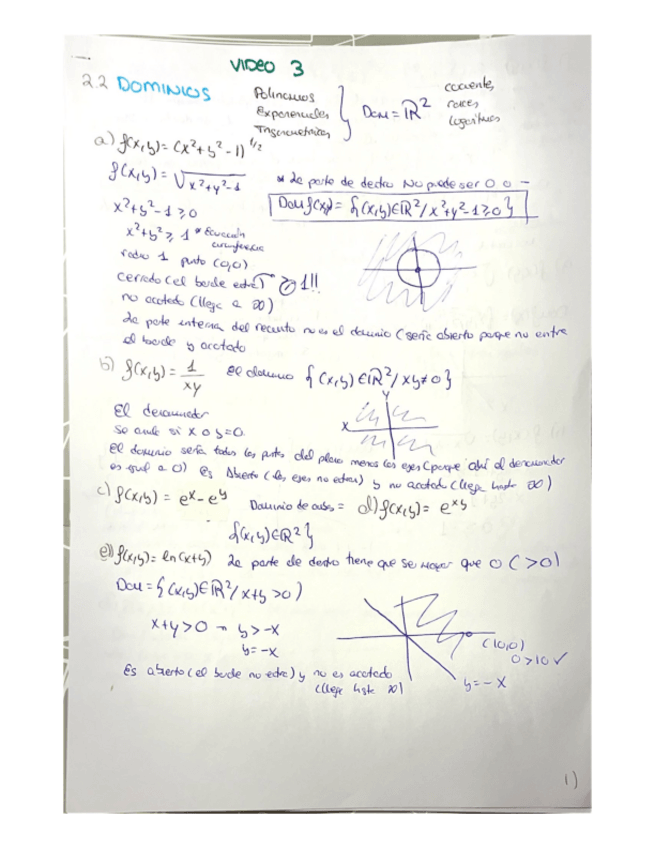 VIDEO 3
2.2 DOMINIOS
Polinomios
Exponenciales
Trigonométricas
Dom = ℝ²
cociente,
raíces
logaritmos
a) f(x,y) = (x²+y²-1)^1/2
f(x,y) = √x²+y²-1
* La parte de dentro No puede ser 0 o -
x²+y²-1 ≥ 0
Dom f(x,y) = {(x,y)∈ℝ² / x²+y²-1 ≥ 0}
x²+y² ≥ 1 * Ecuación circunferencia
radio 1 punto (0,0)
cerrado (el borde entra) → ≥ 1!!
no acotado (llega a ∞)
La parte interna del recinto no es el dominio (sería abierto porque no entra
el borde y acotado
b) f(x,y) = 1/xy El dominio {(x,y)∈ℝ² / xy≠0}
Y
X
El denominador
se anula si x o y=0.
El dominio sería todos los puntos del plano menos los ejes (porque ahí el denominador
es igual a 0) Es Abierto (los ejes no entran) y no acotado (llega hasta ∞)
c) f(x,y) = e^x - e^y Dominio de ambas = d) f(x,y) = e^xy
{(x,y)∈ℝ²}
e) f(x,y) = ln(x+y) La parte de dentro tiene que ser mayor que 0 (>0)
Dom = {(x,y)∈ℝ² / x+y >0)
x+y>0 → y>-x
y=-x
(10,0)
0>10 ✓
y=-x
Es abierto (el borde no entra) y no es acotado
(llega hasta ∞)
1)